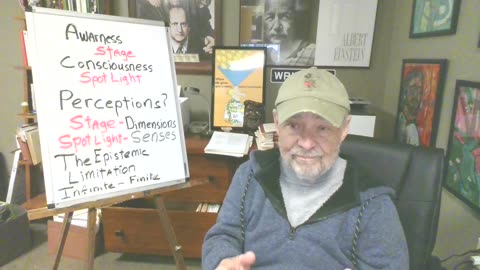 Awarness
Stage
Consciousness
Spot Light
Perceptions?
Stage - Dimensions
Spot Light - Senses
The Epistemic
Limitation
Infinite - Finite
ALBERT
EINSTEIN